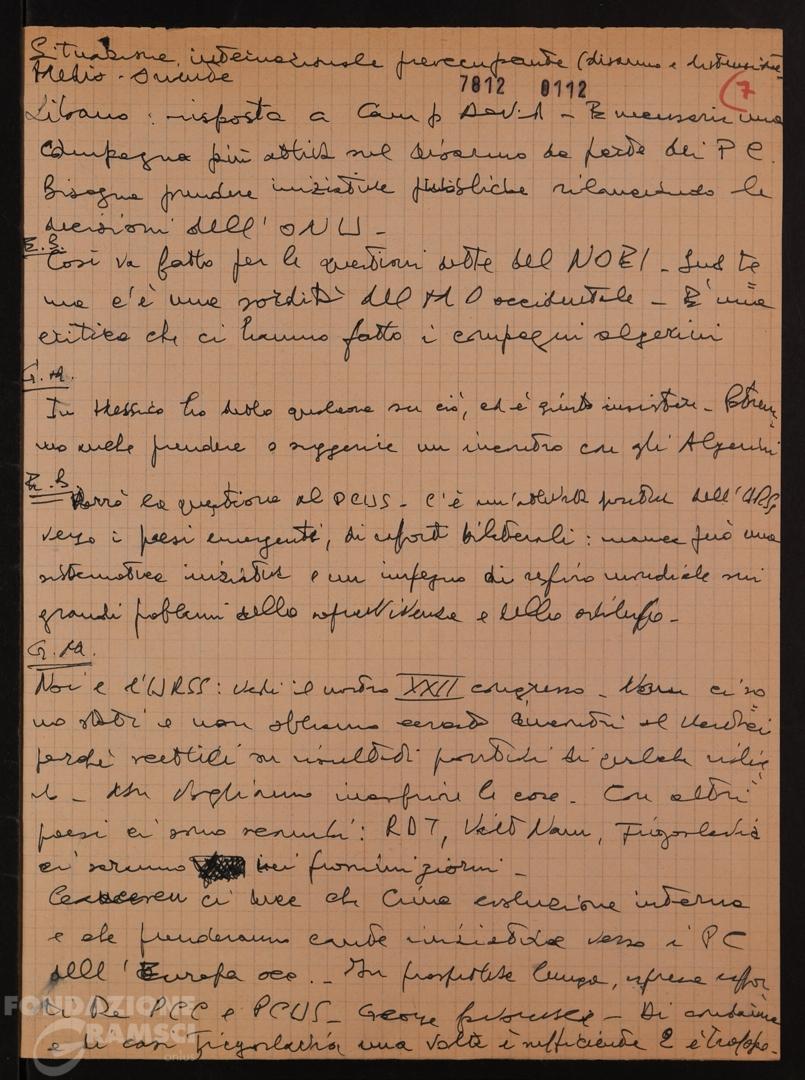 Situazione internazionale preoccupante (disarmo e distensione
Medio-Oriente
7812 0112
7
Libano: risposta a Camp David - È necessaria una
campagna più attiva sul disarmo da parte dei P C.
Bisogna prendere iniziative pubbliche rilanciando le
decisioni dell'ONU -
E.B.
Così va fatto per le questioni dette del NOEI - Sul te
ma c'è una sordità del M O occidentale - È una
critica che ci hanno fatto i compagni algerini
G.M.
In Messico ho detto qualcosa su ciò, ed è giusto insistere - Potrem
mo anche prendere o suggerire un incontro con gli Algerini
E.B.
Porrò la questione al PCUS - C'è un'attività positiva dell'URSS
verso i paesi emergenti, di rapporti bilaterali: manca però una
sistematica iniziativa e un impegno di respiro mondiale sui
grandi problemi della sopravvivenza e dello sviluppo -
G.M.
Noi e l'URSS: vedi il nostro XXII congresso - Non ci so
no stati e non abbiamo cercato incontri al vertice
perché scettici su risultati positivi di
- Non vogliamo inasprire le cose. Con altri
paesi ci sono venuti: RDT, Viet Nam, Jugoslavia
ci saranno nei prossimi giorni -
Ceausescu ci dice che Cina evoluzione interna
e che prenderanno caute iniziative verso i PC
dell'Europa occ. - In prospettiva lunga, ripresa rappor
ti tra PCC e PCUS -
e di casi Jugoslavia, una volta è sufficiente 2 è troppo -
FONDAZIONE
GRAMSCI
onlus